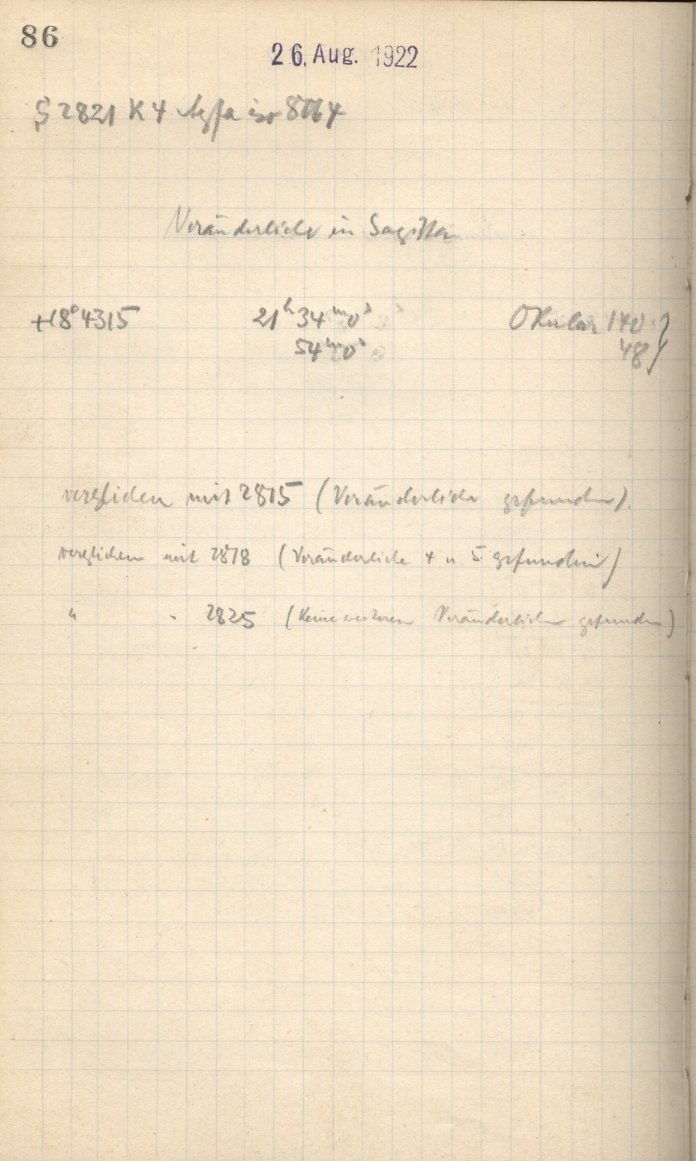 86
26. Aug. 1922
S 2821 K 4 Agfa iso 8164
Veränderliche in Sagitta
+18°4315 21ʰ34ᵐ0ˢ Okular 140
54ᵐ0ˢ 48
verglichen mit 2815 (Veränderliche gefunden).
verglichen mit 2818 (Veränderliche 4 u. 5 gefunden)
" " 2825 (Keine weiteren Veränderlichen gefunden)